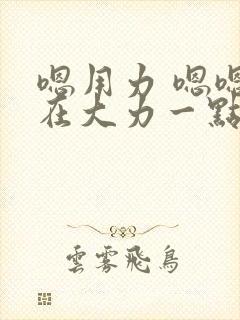 嗯用力 嗯嗯
在大力一點
雲雾飛鳥